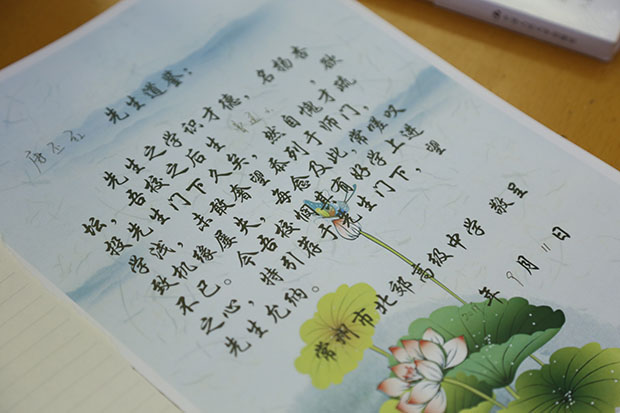 先生道鉴：
先生之学识才德，名扬杏
坛，吾校之后生，欲
投先生门下久矣，然自愧才疏
学浅，未敢奢望忝列于师门，
致机缘屡失，每念及此，常嗟叹
不已。今吾校悯其有好学上进
之心，特引荐于先生门下，望
先生允纳。
常州市北郊高级中学 敬呈
年 9月11日